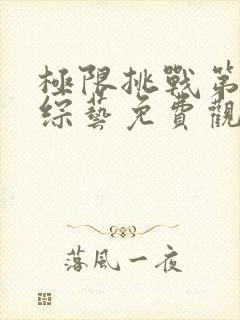 極限挑戰第
綜藝免費觀
落風一夜